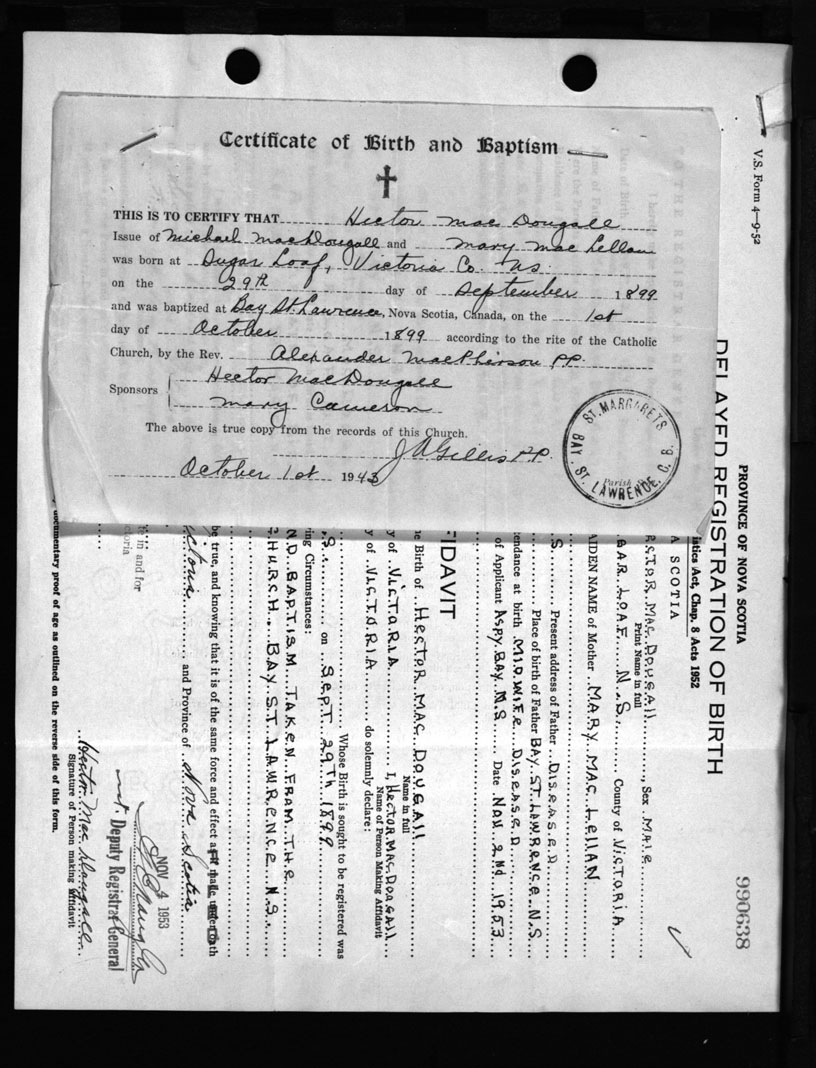 Certificate of Birth and Baptism
THIS IS TO CERTIFY THAT Hector Mac Dougall
Issue of Michael MacDougall and Mary Mac Lellan
was born at Sugar Loaf, Victoria Co. NS.
on the 29th day of September 1899
and was baptized at Bay St. Lawrence, Nova Scotia, Canada, on the 1st
day of October 1899 according to the rite of the Catholic
Church, by the Rev. Alexander MacPherson P.P.
Sponsors Hector MacDougall
Mary Cameron
The above is true copy from the records of this Church.
J A Gillis P.P.
October 1st 1943
ST. MARGARETS
Parish
BAY ST. LAWRENCE C.B.
V.S. Form 4—9-52
PROVINCE OF NOVA SCOTIA
DELAYED REGISTRATION OF BIRTH
istics Act, Chap. 8 Acts 1952
A SCOTIA
990638
CTOR MAC DOUGAll, Sex MAlE
Print Name in full
GAR LOAF N.S. County of VICTORIA
AIDEN NAME of Mother MARY MAC LEllAN
S Present address of Father DISEASED
Place of birth of Father BAY ST LAWRENCE N.S
tendance at birth MIDWIFE DISEASED
of Applicant ASPY BAY N S Date NOV 2Nd 1953
FIDAVIT
he Birth of HECTOR MAC DOUGAll
Name in full
y of VICTORIA I, HECTOR MAC DOUGAll
Name of Person Making Affidavit
y of VICTORIA do solemnly declare:
Whose Birth is sought to be registered was
S. on SEPT 29TH 1899
ing Circumstances:
ND BAPTISM TAKEN FRAM THE
CHURCH. BAY ST LAWRENCE N.S.
be true, and knowing that it is of the same force and effect as if made under oath
ctoria and Province of Nova Scotia
in and for
ctoria
NOV 4 1953
Deputy Registrar General
Hector Mac Dougall
Signature of Person making affidavit
documentary proof of age as outlined on the reverse side of this form.